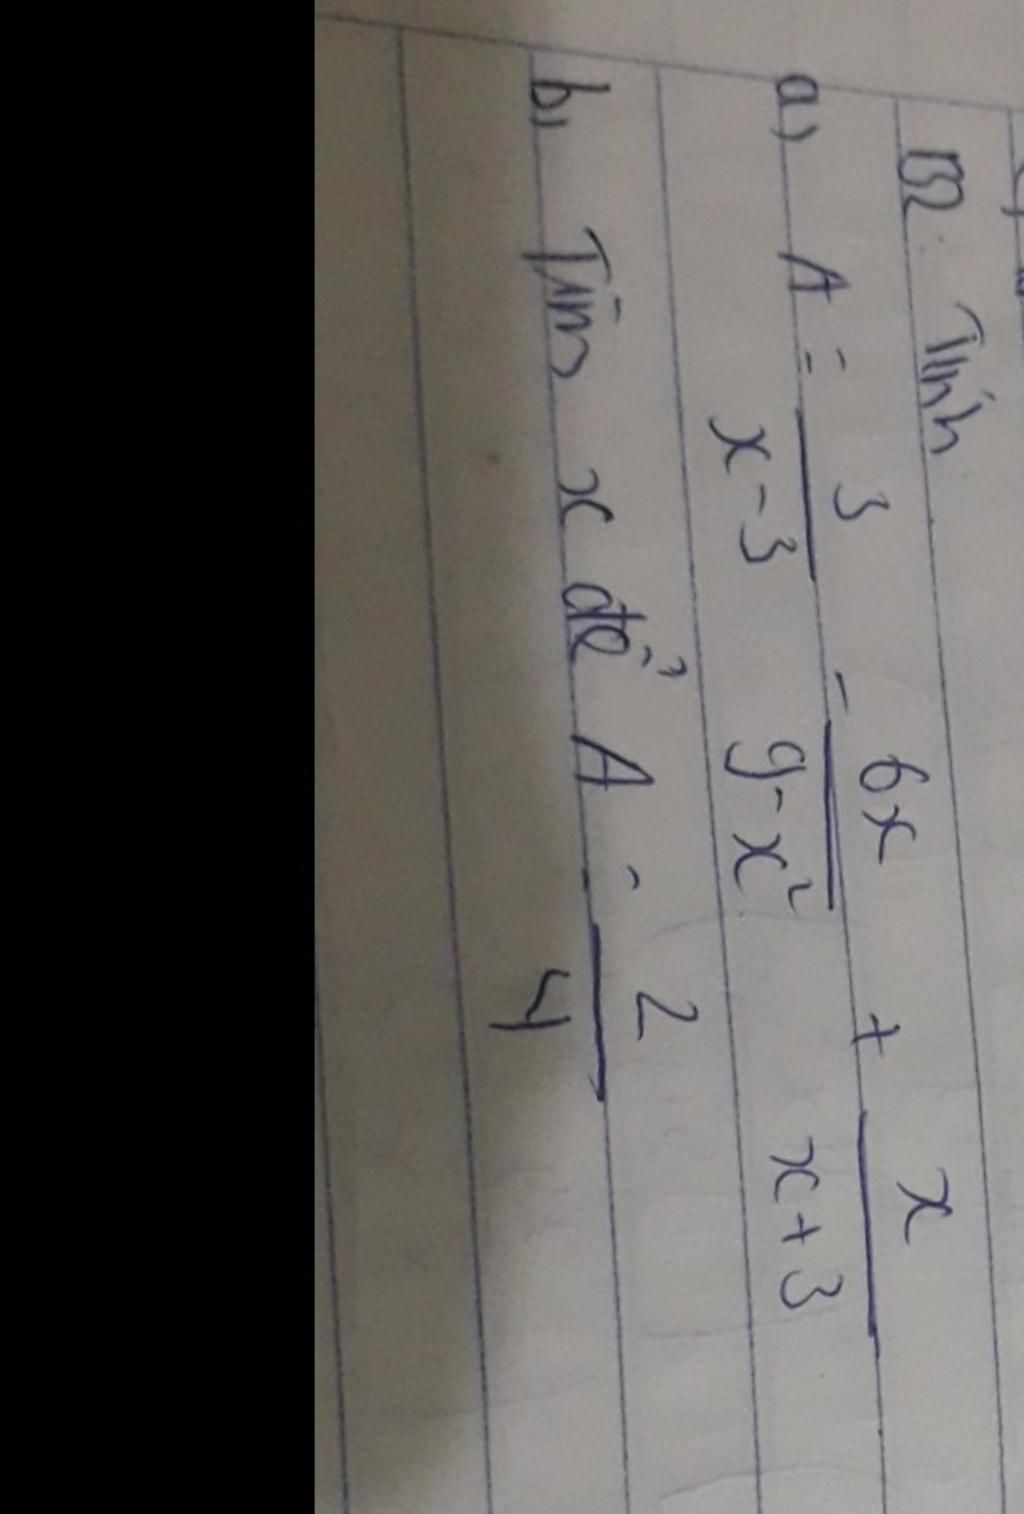 B2. Tính
a, A = 3/(x-3) - 6x/(9-x²) + x/(x+3)
b, Tìm x để A = 2/4